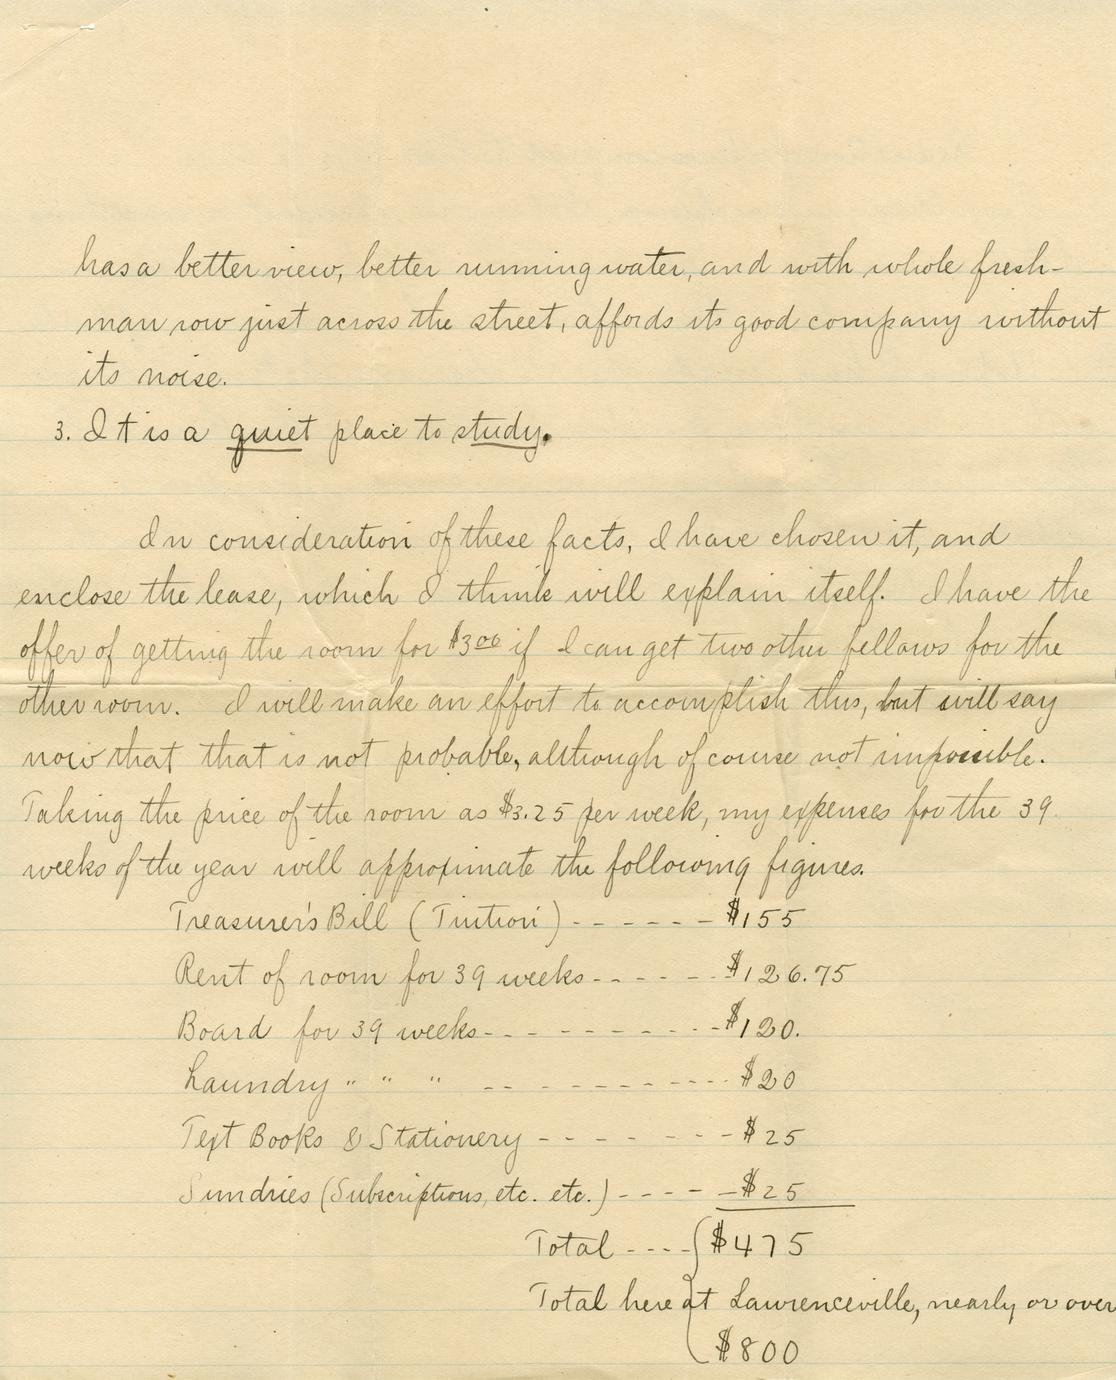 has a better view, better running water, and with whole fresh-
man row just across the street, affords its good company without
its noise.
3. It is a quiet place to study.
In consideration of these facts, I have chosen it, and
enclose the lease, which I think will explain itself. I have the
offer of getting the room for $3.00 if I can get two other fellows for the
other room. I will make an effort to accomplish this, but will say
now that that is not probable, although of course not impossible.
Taking the price of the room as $3.25 per week, my expenses for the 39
weeks of the year will approximate the following figures.
Treasurer's Bill (Tuition) ------ $155
Rent of room for 39 weeks ------ $126.75
Board for 39 weeks ---------- $120.
Laundry " " " ---------- $20
Text Books & Stationery ------- $25
Sundries (Subscriptions, etc. etc.) ----- $25
Total ---- $475
Total here at Lawrenceville, nearly or over
$800